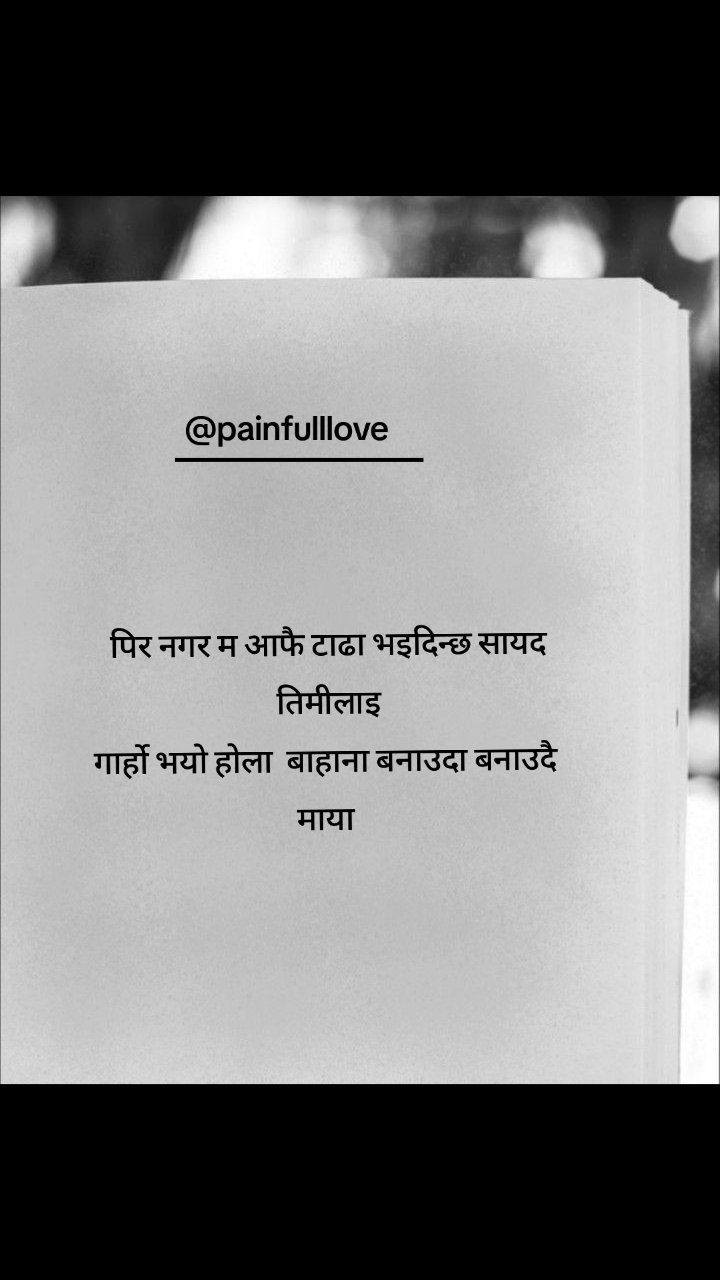 @painfulllove
पिर नगर म आफै टाढा भइदिन्छ सायद
तिमीलाइ
गार्हो भयो होला  बाहाना बनाउदा बनाउदै
माया